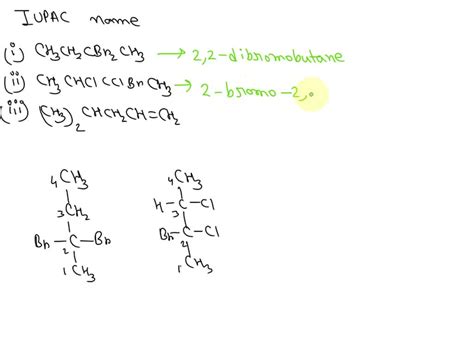 IUPAC name
(i) CH3CH2CBr2CH3 → 2,2-dibromobutane
(ii) CH3CHClCClBrCH3 → 2-bromo-2,
(iii) (CH3)2CHCH2CH=CH2
4CH3 4CH3
3CH2 H-C-Cl
3
Br-C-Br Br-C-Cl
2 2
1CH3 1CH3